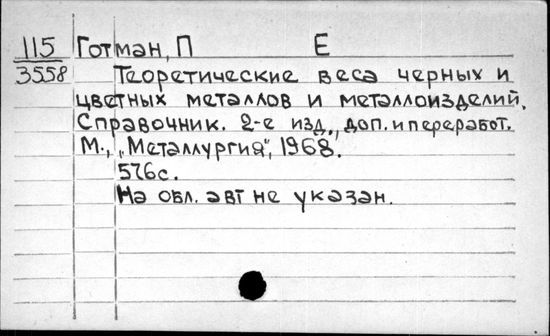 115 Готман, П Е
3558 Теоретические веса черных и
цветных металлов и металлоизделий.
Справочник. 2-е изд., доп. и переработ.
М., „Металлургия", 1968.
576 с.
На обл. авт не указан.